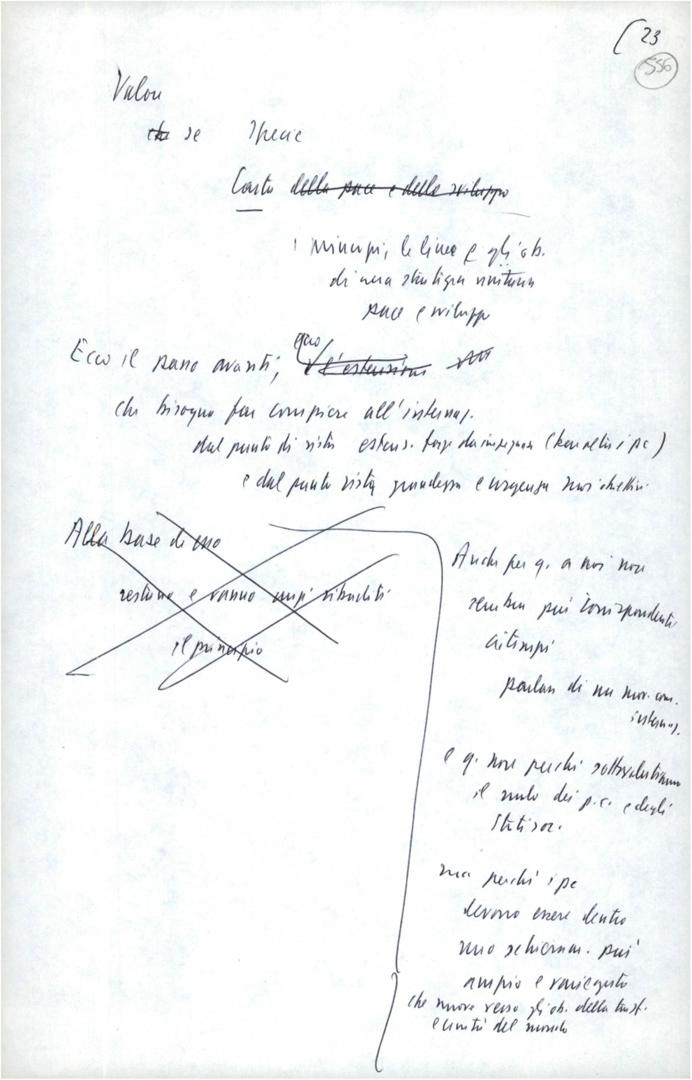 23
556
Valori
che se specie
Carta della pace e dello sviluppo
i principi, le linee e gli ob.
di una strategia unitaria
pace e sviluppo
Ecco il passo avanti, ecco l'estensione
che bisogna far compiere all'internaz.
dal punto di vista estens. forze da impegnare (ben altro i pc)
e dal punto vista grandezza e urgenza nuovi obiettivi
Alla base di esso
restano e vanno ribaditi
il principio
Anche per q. a noi non
sembra più corrispondente
ai tempi
parlare di un mov. com.
internaz.
e q. non perché sottovalutiamo
il ruolo dei p.c. e degli
Stati soc.
ma perché i pc
devono essere dentro
uno schieram. più
ampio e variegato
che muove verso gli ob. della trasf.
e unità del mondo